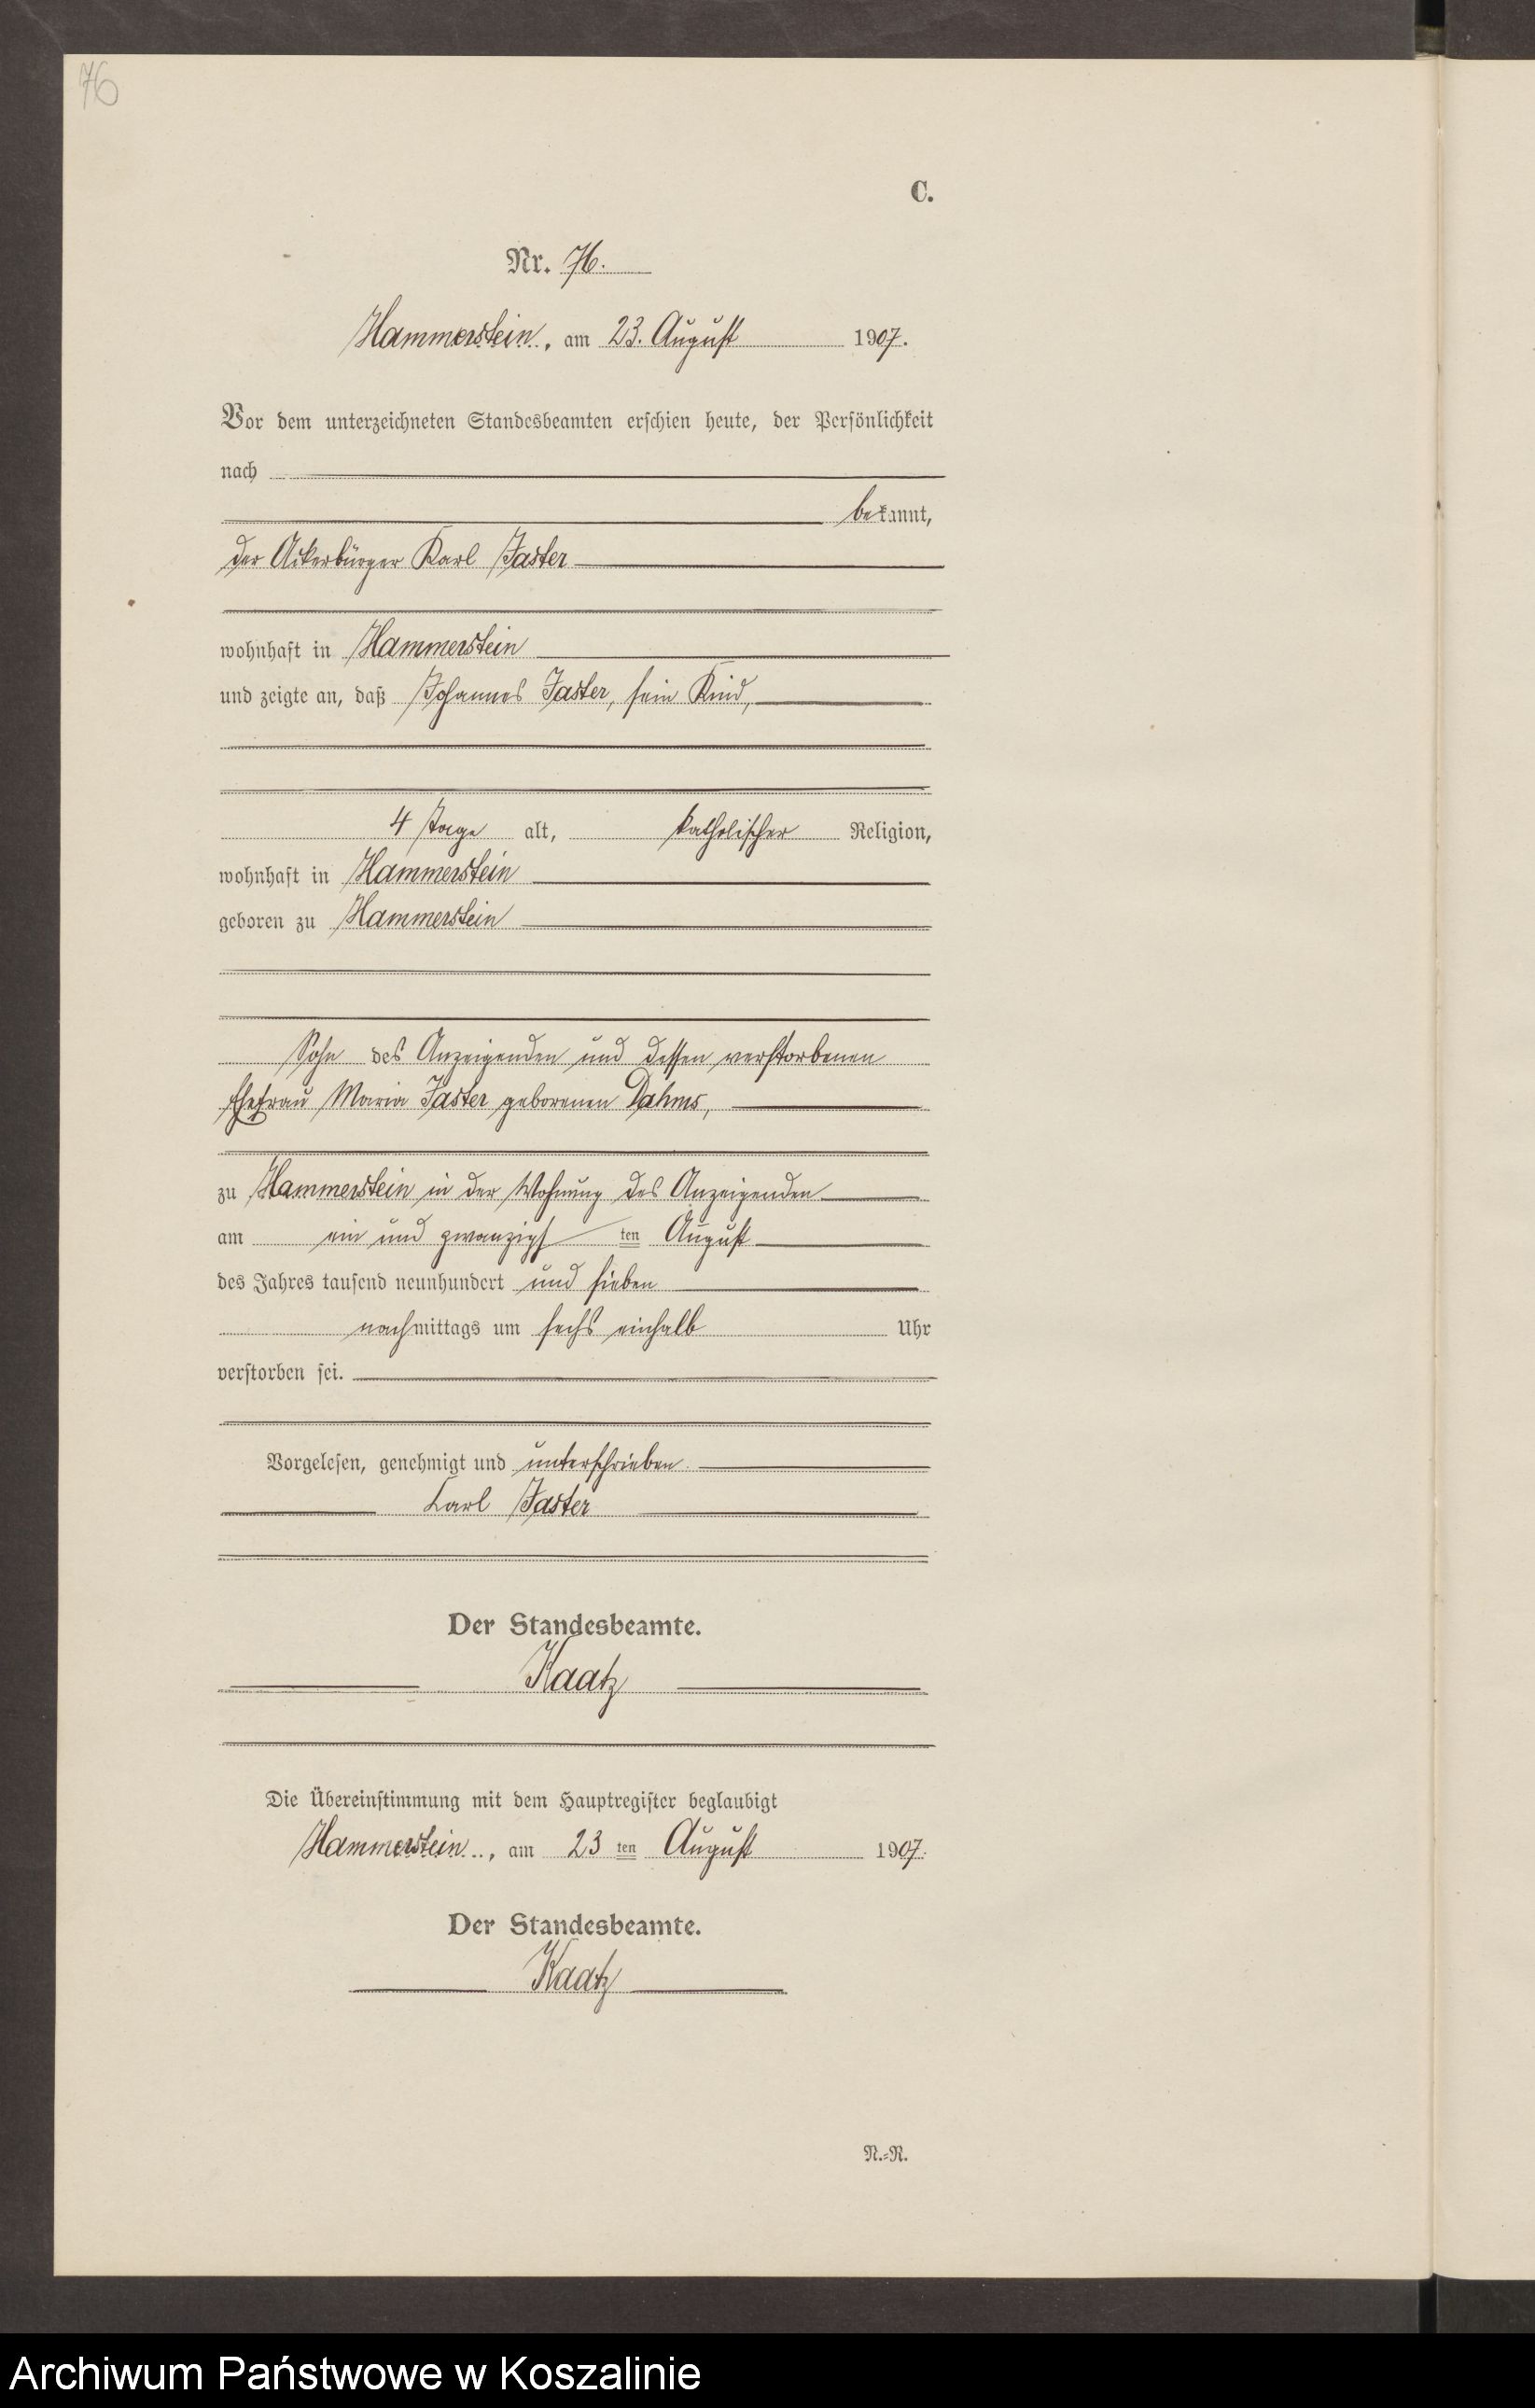 76
C.
Nr. 76.
Hammerstein, am 23. August 1907.
Vor dem unterzeichneten Standesbeamten erschien heute, der Persönlichkeit
nach
bekannt,
der Ackerbürger Karl Jaster
wohnhaft in Hammerstein
und zeigte an, daß Johannes Jaster, sein Kind,
4 Tage alt, katholischer Religion,
wohnhaft in Hammerstein
geboren zu Hammerstein
Sohn des Anzeigenden und dessen verstorbenen
Ehefrau Maria Jaster geborenen Dahms,
zu Hammerstein in der Wohnung des Anzeigenden
am ein und zwanzigsten August
des Jahres tausend neunhundert und sieben
nachmittags um sechs einhalb Uhr
verstorben sei.
Vorgelesen, genehmigt und unterschrieben.
Karl Jaster
Der Standesbeamte.
Kaatz
Die Übereinstimmung mit dem Hauptregister beglaubigt
Hammerstein, am 23 ten August 1907.
Der Standesbeamte.
Kaatz
N.-R.
Archiwum Państwowe w Koszalinie